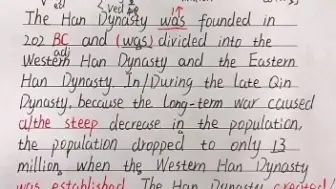 ved
The Han Dynasty was founded in
202 BC and (was) divided into the
adj
Western Han Dynasty and the Eastern
Han Dynasty. In/During the late Qin
Dynasty, because the long-term war caused
a/the steep decrease in the population,
the population dropped to only 13
million, when the Western Han Dynasty
was established. The Han Dynasty created